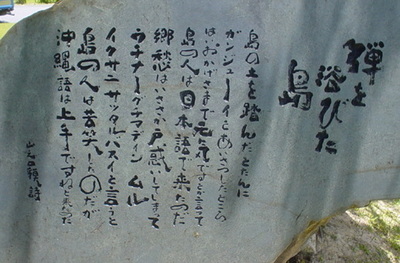 弾を
浴びた
島
島の土を踏んだとたんに
ガンジューイとあいさつしたところ
はいおかげさまで元気ですとか言って
島の人は日本語で来たのだ
郷愁はいささか戸惑いしてしまって
ウチナーグチマディン ムル
イクサニ サッタルバスイと言うと
島の人は苦笑したのだが
沖縄語は上手ですねと来たのだ
山之口貘 詩